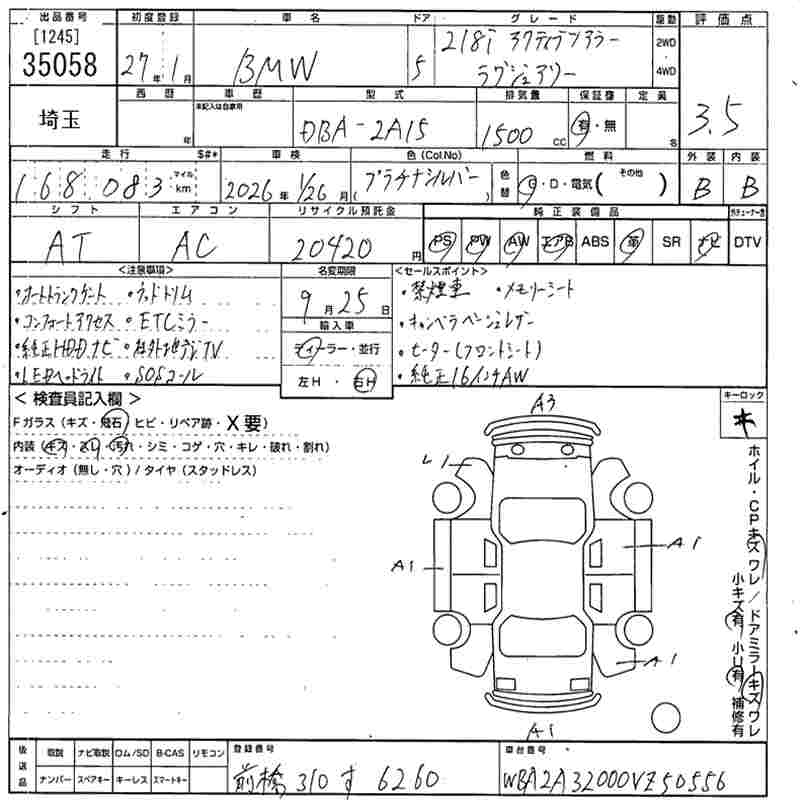 出品番号 初度登録 車名 ドア グレード 駆動 評価点
[1245]
35058
27年1月 BMW 5 218i アクティブツアラー
ラグジュアリー
2WD
・
4WD
3.5
埼玉
西暦 車歴 型式 排気量 保証書 定員
年 未記入は自家用 DBA-2A15 1500cc 有・無 名
走行 $#* 車検 色(Col.No) 燃料 外装 内装
168,083 マイル km 2026年1/26月 (プラチナシルバー) 色替 G・D・電気( その他 ) B B
シフト エアコン リサイクル預託金 純正装備品
AT AC 20420円 PS PW AW エアB ABS 革 SR ナビ DTV
<注意事項> 名変期限 <セールスポイント>
・オートトランクゲート ・ウッドトリム
・コンフォートアクセス ・ETCミラー
・純正HDDナビ ・社外地デジTV
・LEDヘッドライト ・SOSコール
9月25日
輸入車
ディーラー・並行
左H・右H
・禁煙車 ・メモリーシート
・キャンベラベージュレザー
・ヒーター(フロントシート)
・純正16インチAW
< 検査員記入欄 >
Fガラス (キズ・飛石 ヒビ・リペア跡・X要)
内装 (キズ・スレ・汚れ・シミ・コゲ・穴・キレ・破れ・割れ)
オーディオ (無し・穴) / タイヤ (スタッドレス)
キーロック
キ
A3
L1
A1
A1
A1
A1
ホイル・CPキズ ワレ / ドアミラーキズ ワレ
小キズ有 小U有 補修有
後送品 取説 ナビ取説 ロム/SD B-CAS リモコン
ナンバー スペアキー キーレス スマートキー
登録番号
前橋 310 す 6260
車台番号
WBA2A32000VZ50556